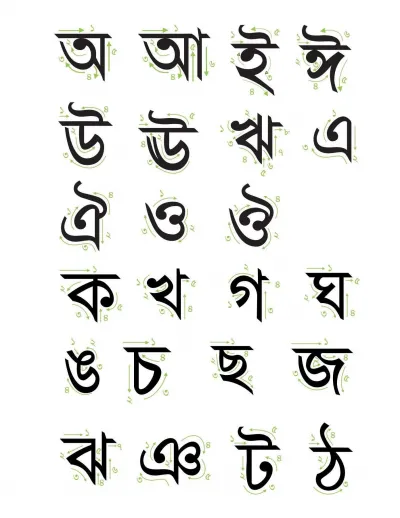 অ আ ই ঈ
উ ঊ ঋ এ
ঐ ও ঔ
ক খ গ ঘ
ঙ চ ছ জ
ঝ ঞ ট ঠ